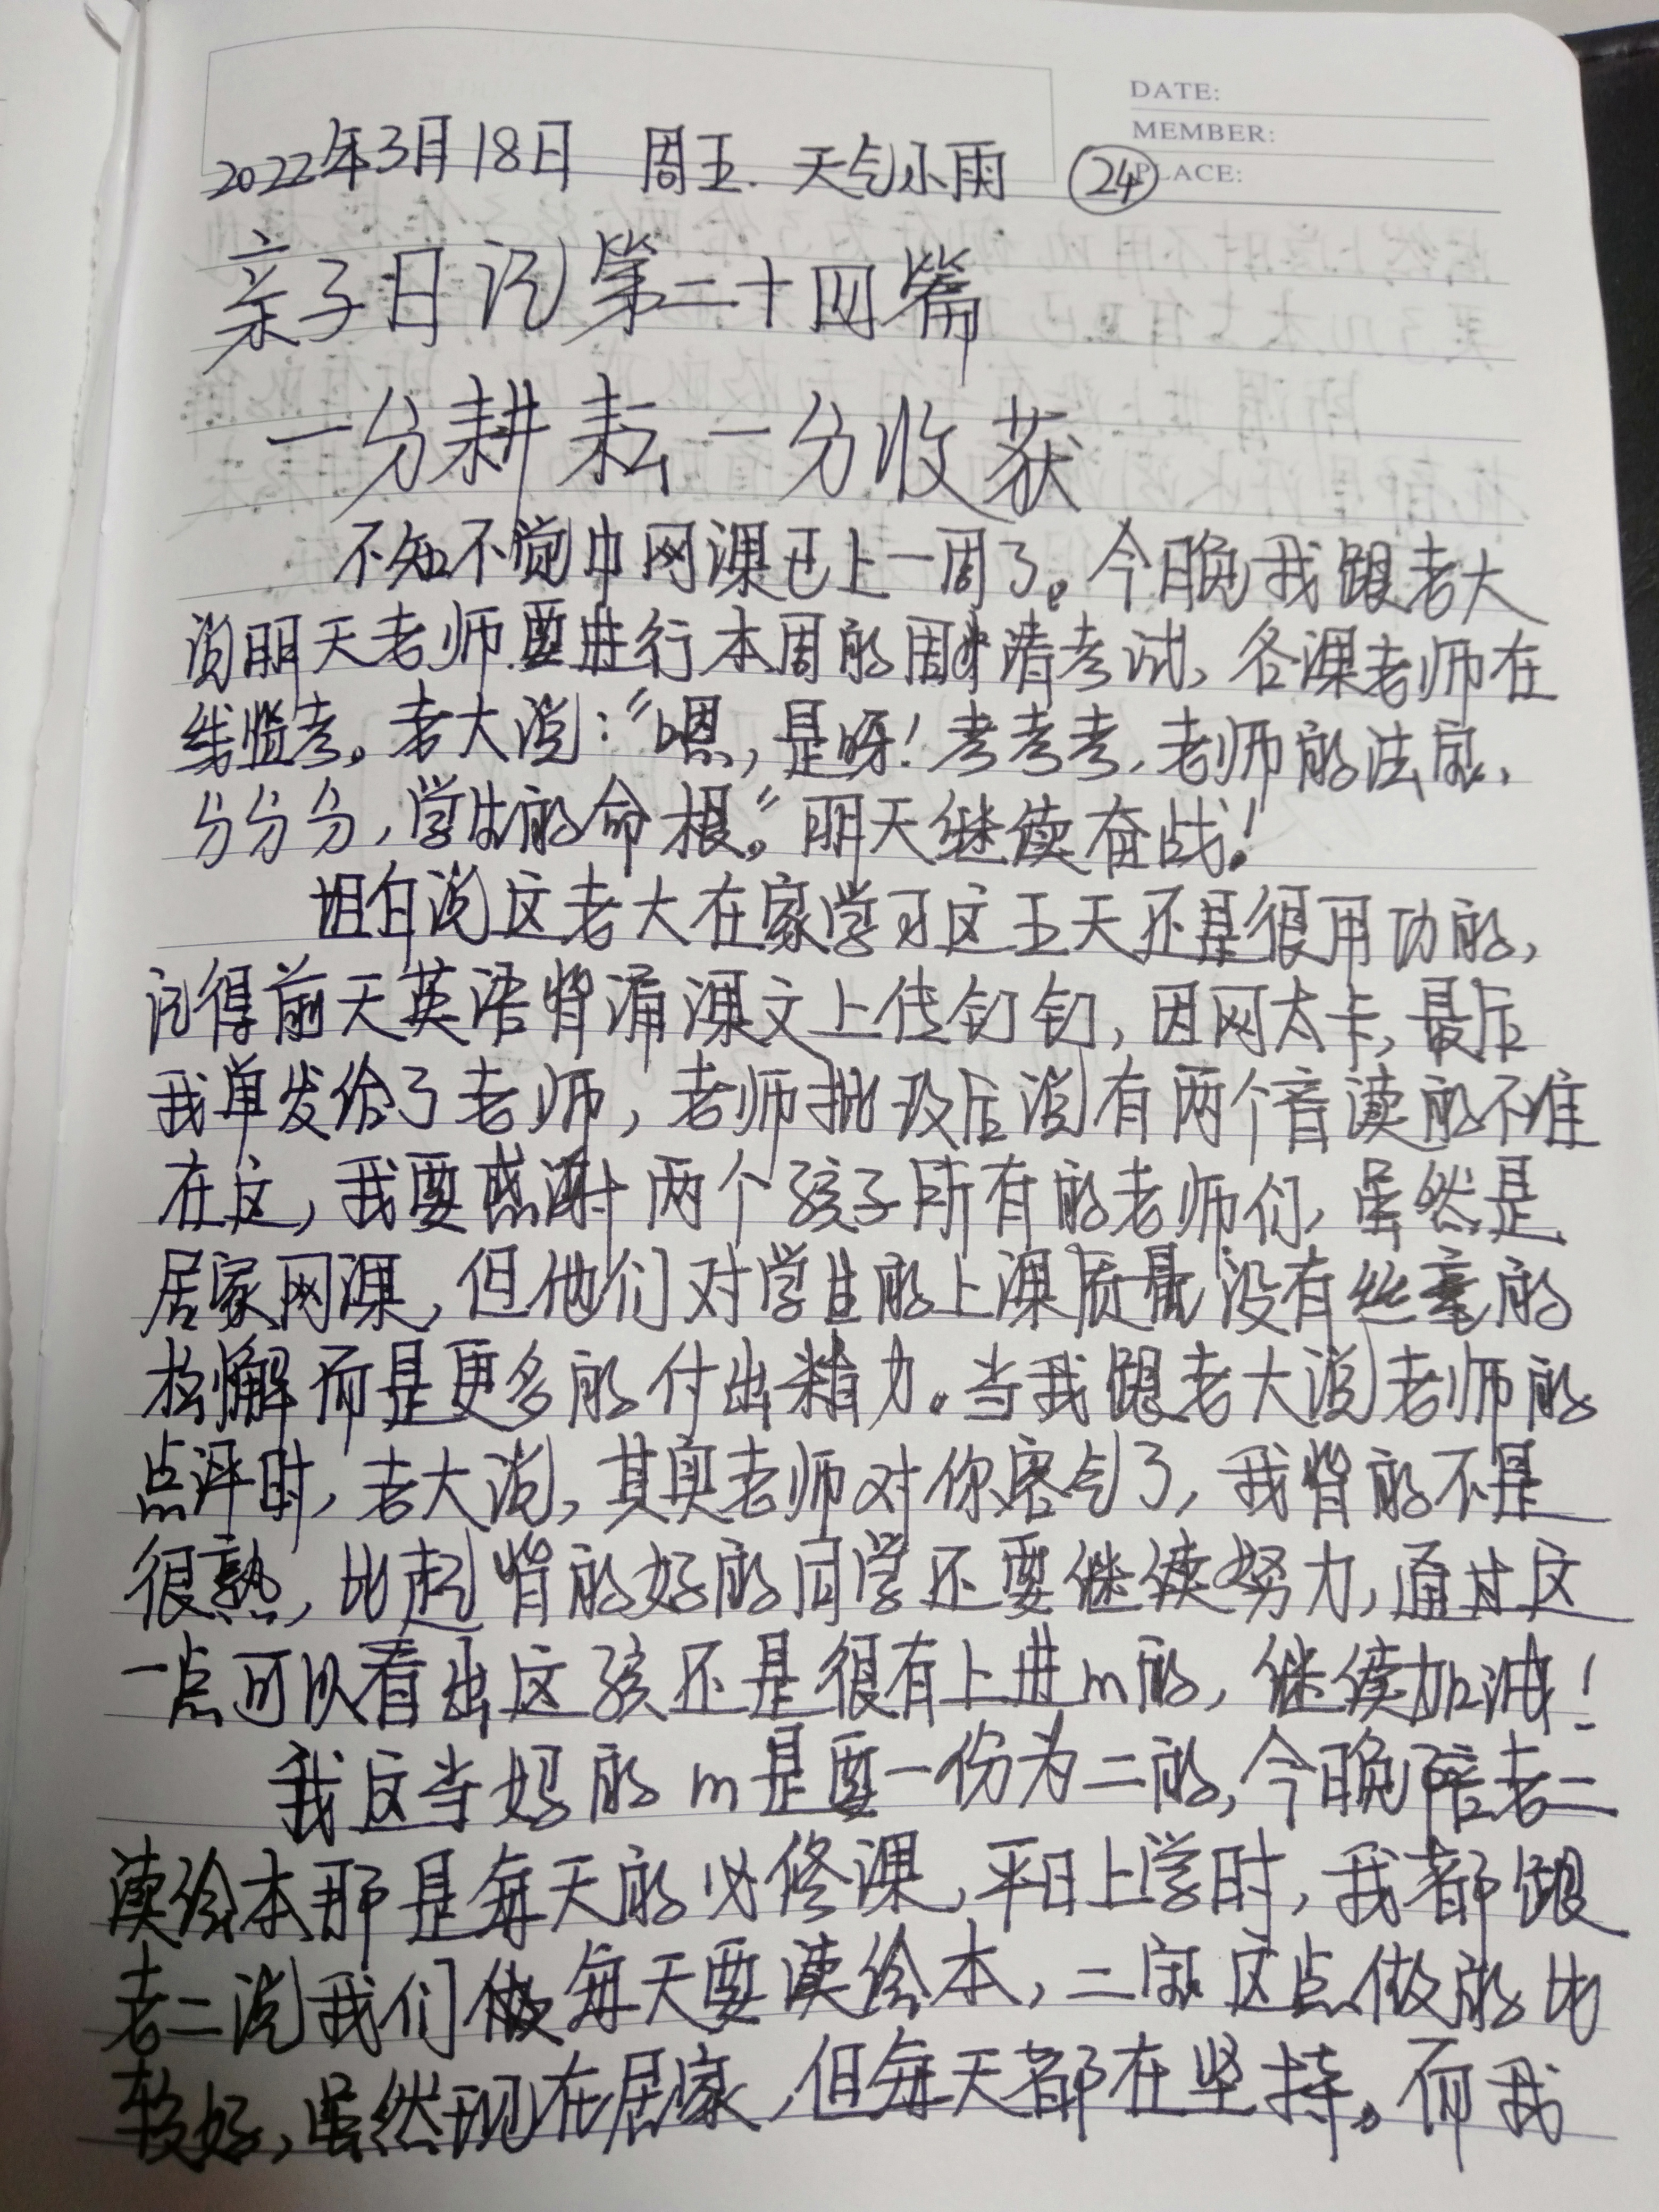 DATE:
MEMBER:
PLACE:
2022年3月18日 周五. 天气小雨 24
亲子日记第二十四篇
一分耕耘一分收获
不知不觉中网课已上一周了。今晚我跟老大
说明天老师要进行本周的周清考试、各课老师在
线监考。老大说:“嗯,是呀!考考考,老师的法宝,
分分分,学生的命根。”明天继续奋战!
坦白说这老大在家学习这五天还是很用功的,
记得前天英语背诵课文上传钉钉,因网太卡,最后
我单发给了老师,老师批改后说有两个音读的不准
在这,我要感谢两个孩子所有的老师们,虽然是
居家网课,但他们对学生的上课质量没有丝毫的
松懈而是更多的付出精力。当我跟老大说老师的
点评时,老大说,其实老师对你客气了,我背的不是
很熟,比起背的好的同学还要继续努力,通过这
一点可以看出这孩还是很有上进m的,继续加油!
我这当妈的m是要一份为二的,今晚陪老二
读绘本那是每天的必修课,平日上学时,我都跟
老二说我们做每天要读绘本,二宝这点做的比
较好,虽然现在居家,但每天都在坚持。而我